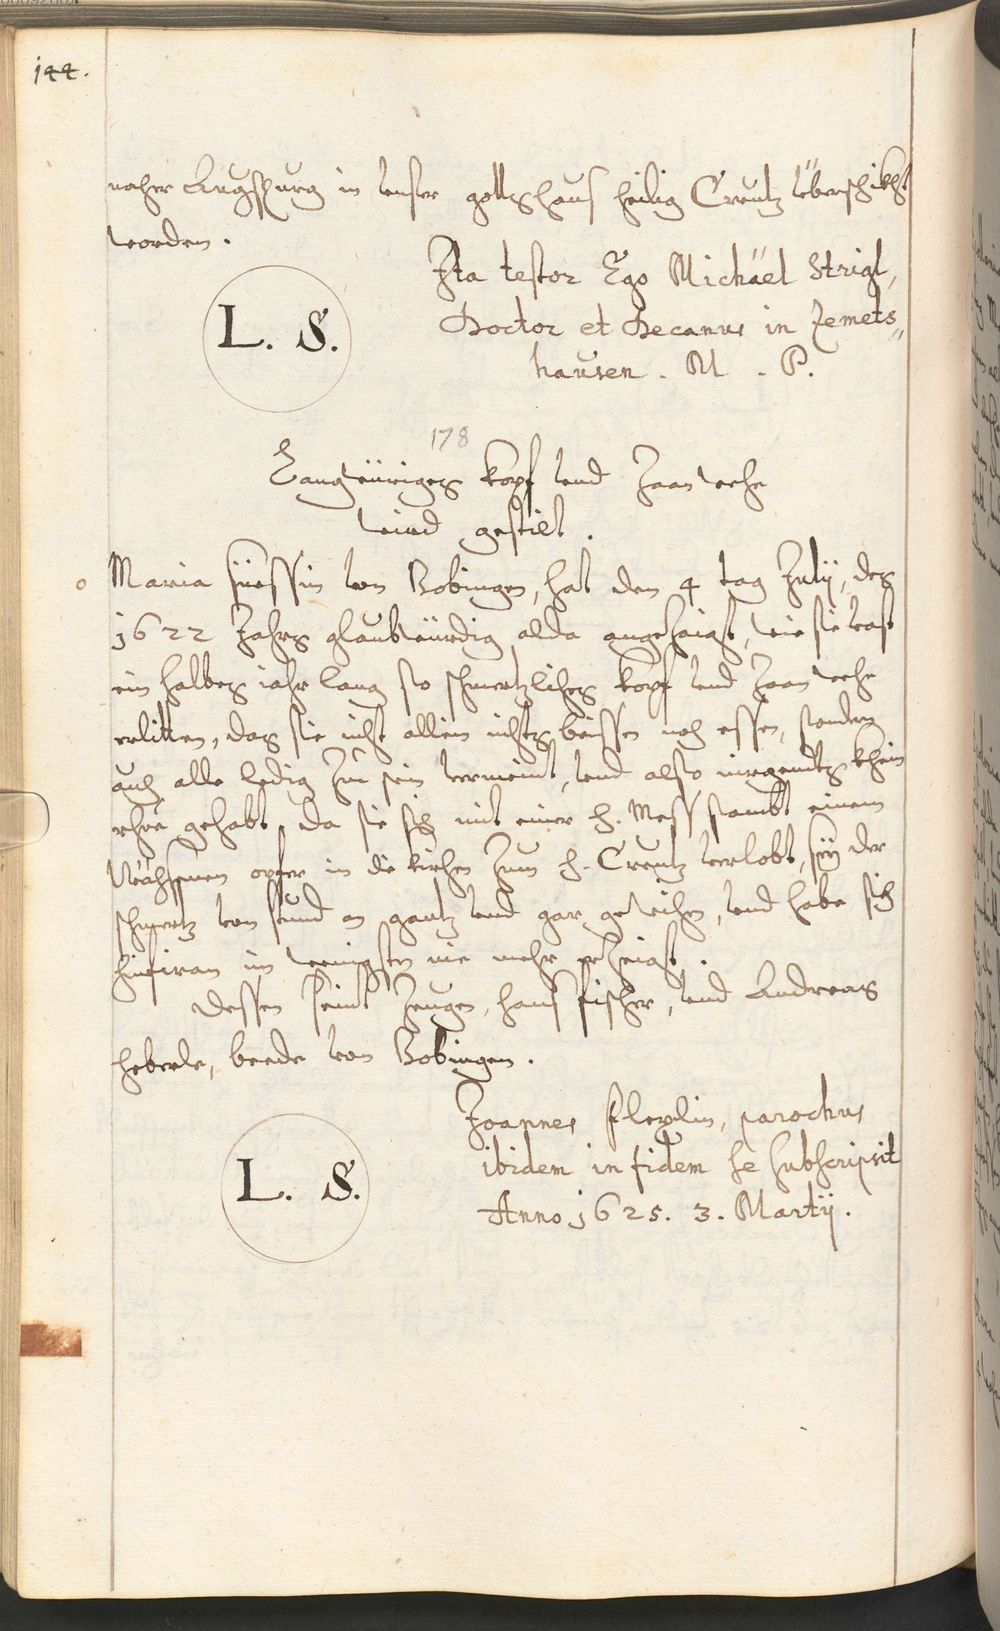 144.
naher Augspurg in unser gottshaus heilig Creutz überschikht
worden.
Ita testor Ego Michäel Strigl,
Doctor et Decanus in Zemets„
hausen. M. P.
L. S.
178
Langwüriges kopf und Zaan wehe
wird gestilt.
Maria Süessin von Bobingen, hat den 4 tag Julÿ, des
1622 Jahrs glaubwürdig alda angezaigt, wie sie vast
ein halbes iahr lang so schmertzliches kopf und Zaan wehe
erlitten, das sie nicht allein nichts beissen noch essen, sondern
auch alle ledig zu sein vermeint, und also niergendts khein
rhue gehabt, da sie sich mit einer h. Mess sambt einem
Wächssenen opfer in die kirchen zum h. Creutz verlobt, seÿ der
schmertz von stund an gantz und gar gewichen, und habe sich
hinfiran im wenigsten nie mehr erzeigt.
dessen seint Zeugen, hans fischer, und Andreas
heberle, beede von Bobingen.
Joannes parochus
ibidem in fidem se subscripsit
Anno 1625. 3. Martÿ.
L. S.